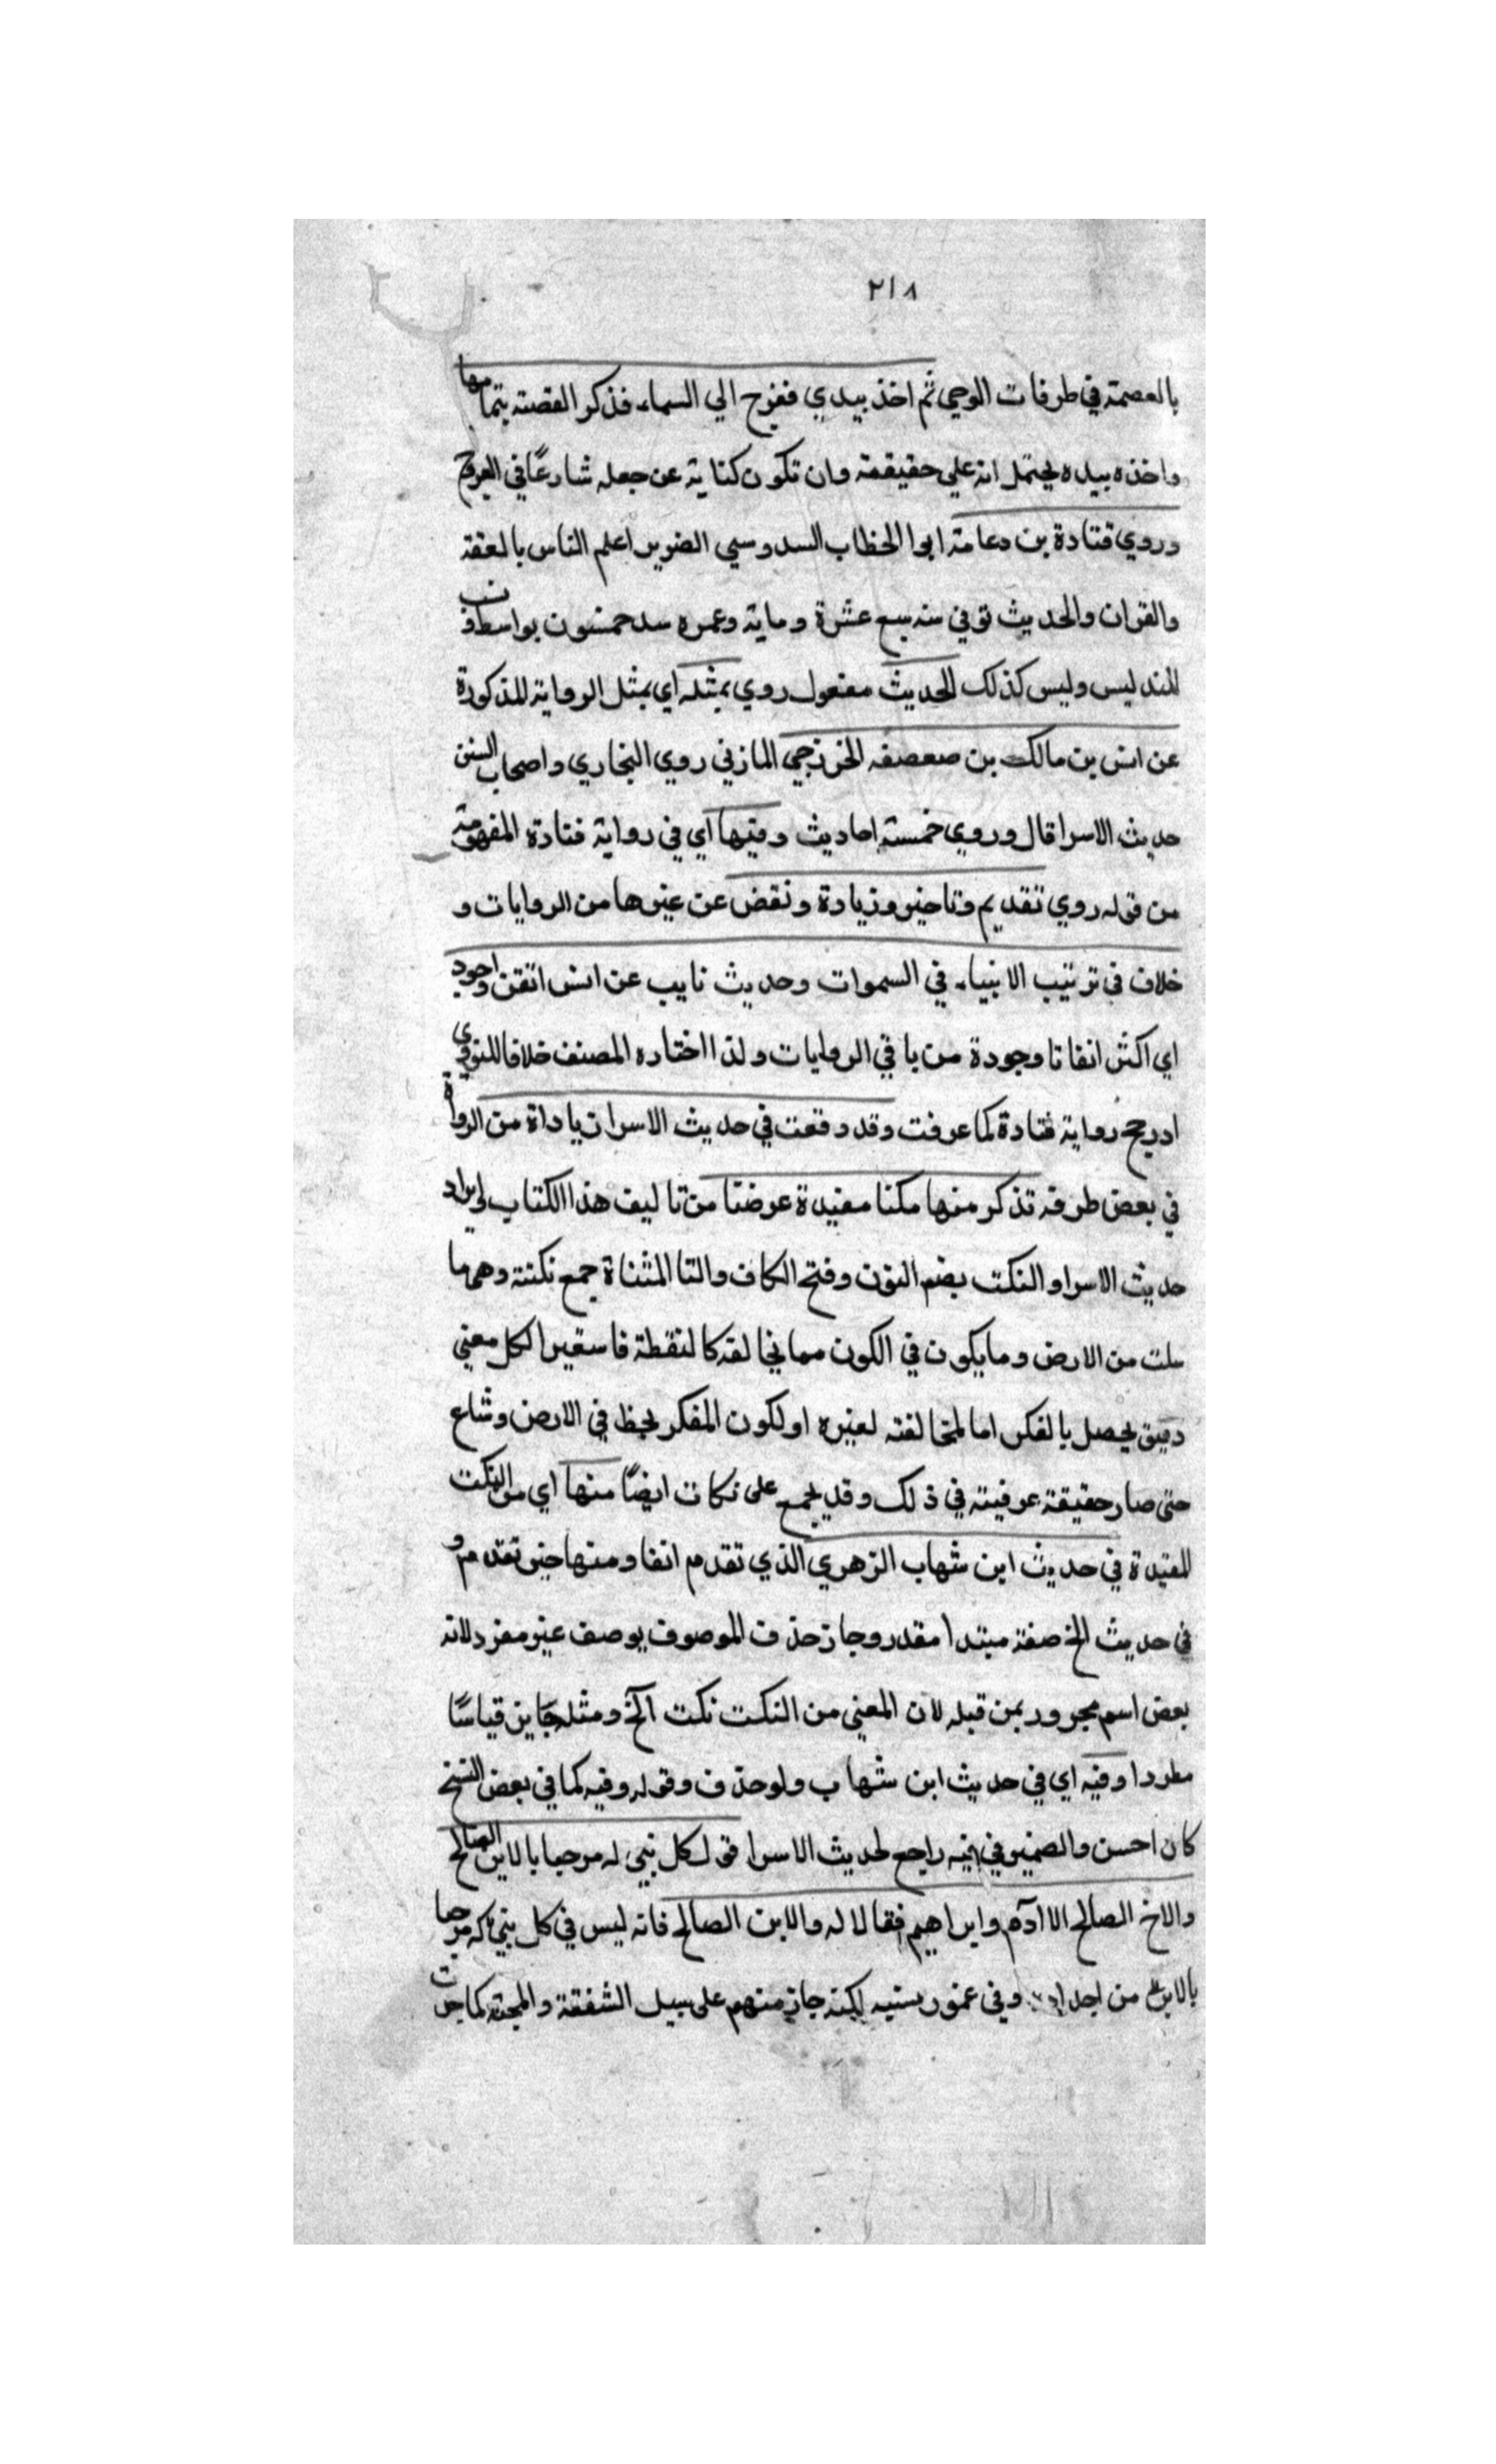 ٢١٨
بالعصمة في طرفات الوحي ثم اخذ بيدي فغرج الي السماء فذكر القصته بتمامها
واخذه بيده يحتمل انه علي حقيقمة وان تكون كناية عن جعله شارعًا في العروج
وروي قتادة بن دعامة ابوا الخطاب السدوسي الضرير اعلم الناس بالفقه
والقران والحديث توفي سنه سبع عشرة وماية وعمره خمسون بواسط
وليس كذلك الحديث مفعول روي بمثله اي بمثل الرواية المذكورة
عن انس بن مالك بن صعصفه الخزرجي المازني روي البخاري واصحاب السنن
حديث الاسرا قال وروي خمسة احاديث وفيها اي في رواية قتادة المفهومة
من قوله روي تقديم وتاخير وزيادة ونقض عن غيرها من الروايات و
خلاف في ترتيب الانبياء في السموات وحديث ثابب عن انس اتقن واجود
اي اكثر اتقانا وجودة من باقي الروايات ولذا اختاره المصنف خلافا للنووي
اذ رجح رواية قتادة كما عرفت وقد وقعت في حديث الاسرا زيادة من الرواة
في بعض طرقه تذكر منها مكنا مفيدة عرضنا من تاليف هذا الكتاب لايراد
حديث الاسرا والنكت بضم النون وفتح الكاف والتا المثناة جمع نكتة وهي ما
سلت من الارض وما يكون في الكون مما يخالفه كا لنقطة فاستعير لكل معني
دقيق يحصل بالفكر اما لمخالفته لغيره او لكون المفكر يخط في الارض وشاع
حتى صار حقيقة عرفيته في ذلك وقد يجمع على نكات ايضًا منها اي من النكت
المفيدة في حديث ابن شهاب الزهري الذي تقدم انفا ومنها خبر تقدم و
في حديث الخ صفة مبتدا مقدر وجاز حذف الموصوف بوصف غير مفرد لانه
بعض اسم مجرور بمن قبله لان المعني من النكت نكت الخ ومثله جايز قياسًا
مطردا وفيه اي في حديث ابن شهاب ولو حذف وقوله وفيه كما في بعض النسخ
كان احسن والضمير في فيه راجع لحديث الاسرا قول كل نبي له مرحبا بالابن الصالح
والاخ الصالح الا ادم وابراهيم فقالا له والابن الصالح فانه ليس في كل نبي ذكره مرحبا
بالابن من اجداده وفي عمور نسبه لكنه جاز منهم على سبيل الشفقة والمحبة كما جرت